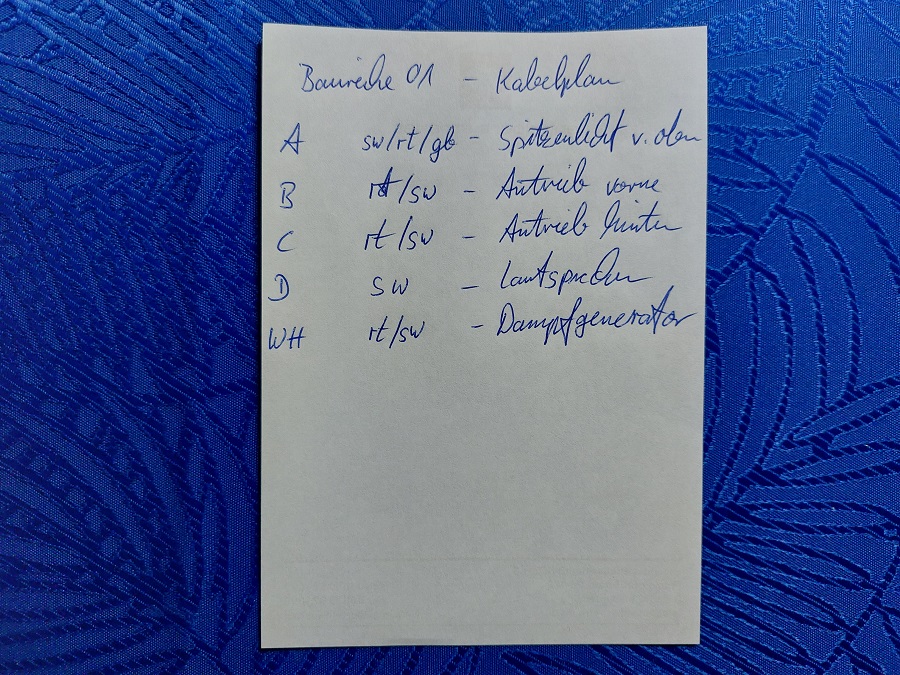 Baureihe 01 - Kabelplan
A sw/rt/gb - Spitzenlicht v. oben
B rt/sw - Antrieb vorne
C rt/sw - Antrieb hinten
D sw - Lautsprecher
WH rt/sw - Dampfgenerator